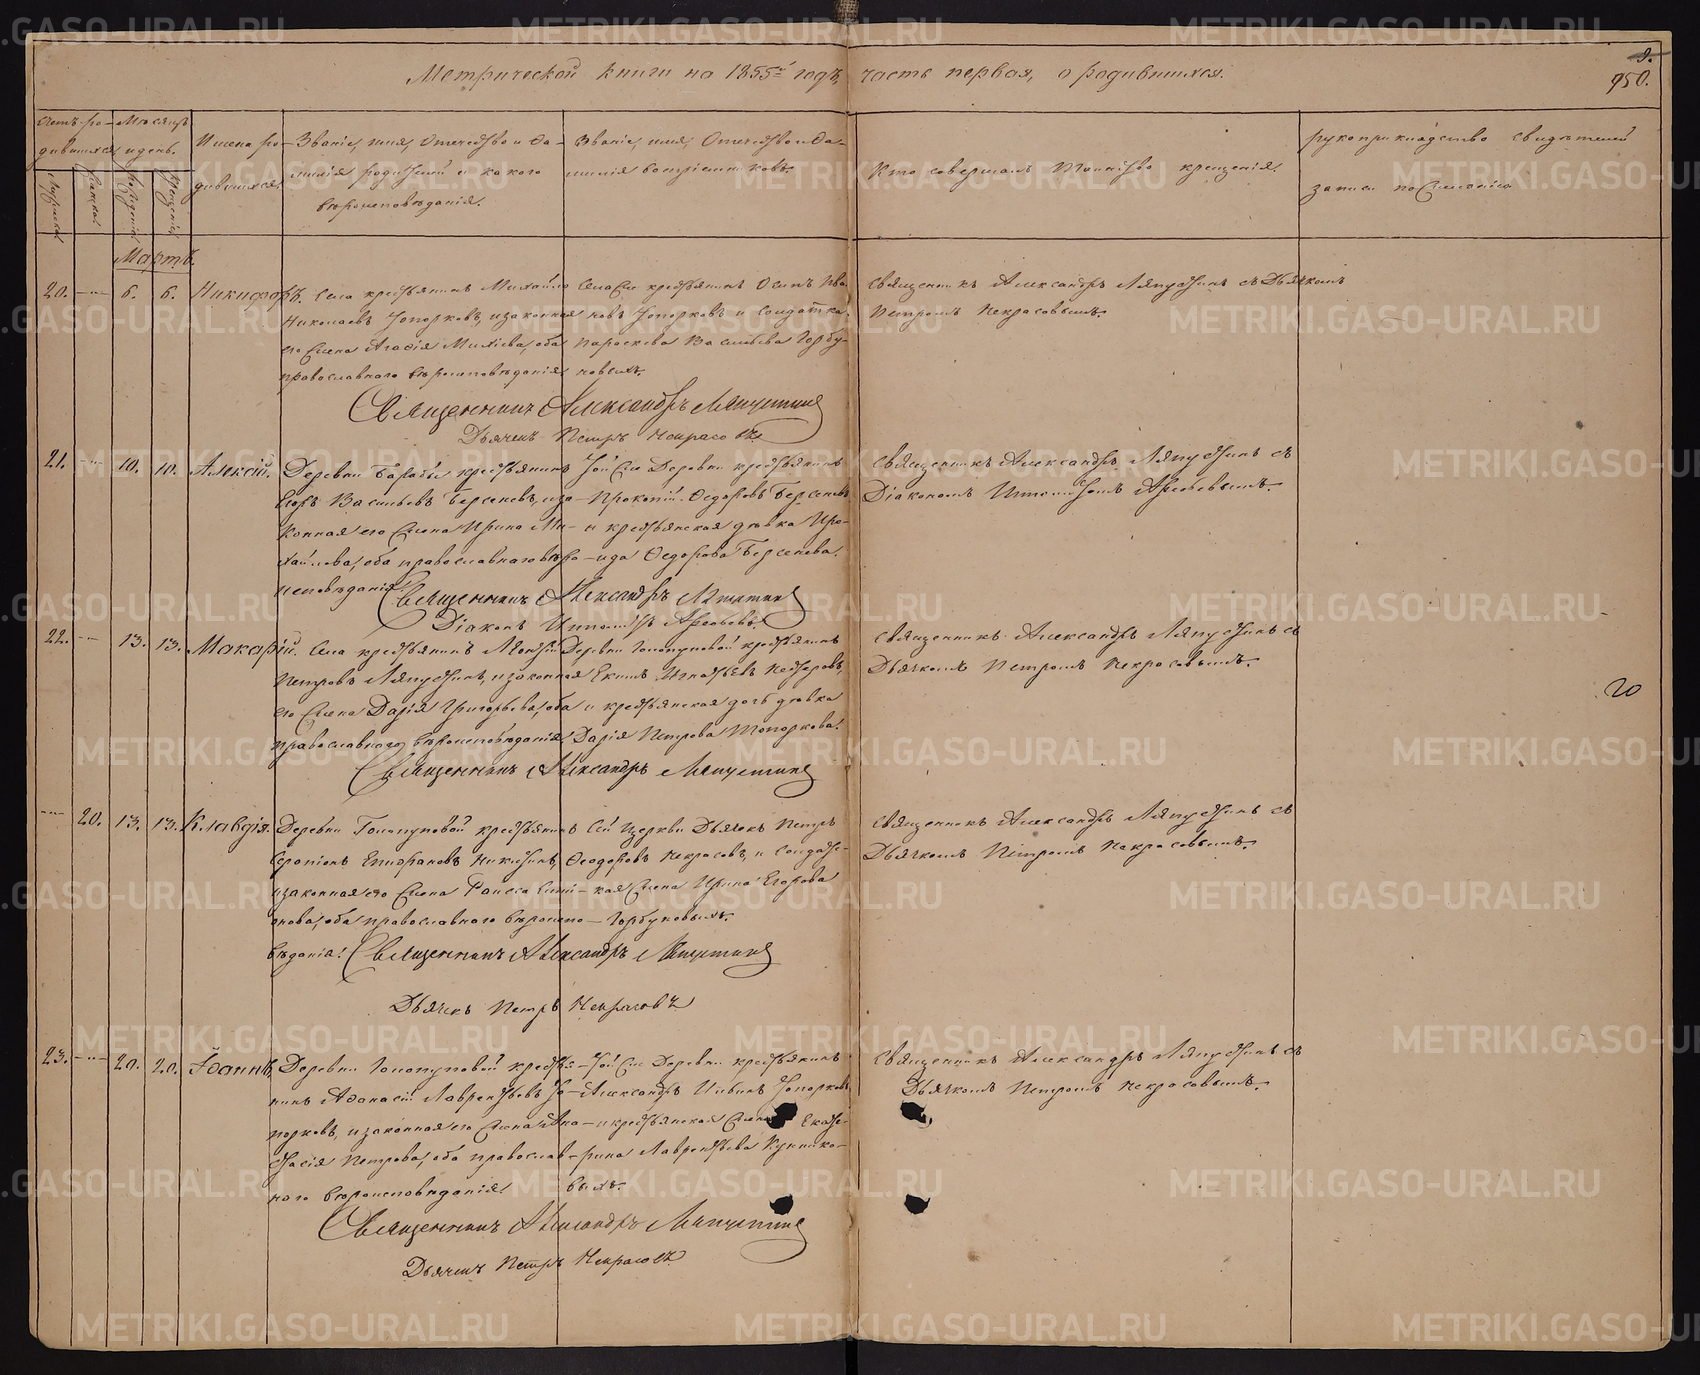 Метрической книги на 1855й годъ, часть первая, о родившихся.
9.
950.
Счетъ ро-
дившихся
Мужеска
Женска
Мѣсяцъ
и день.
рожденія
крещенія
Имена ро-
дившихся.
Званіе, имя, отчество и фа-
милія родителей и какого
вѣроисповѣданія.
Званіе, имя, отчество и фа-
милія воспріемниковъ.
Кто совершалъ таинство крещенія.
рукоприкладство свидѣтелей
записи по желанію
Мартъ.
20. 6. 6. Никифоръ.
Села крестьянинъ Михайло
Николаевъ Топорковъ, и законная
его жена Агафія
православнаго вѣроисповѣданія
Села сего крестьянинъ Осипъ Ива-
новъ Топорковъ и солдатка
Параскева Васильева Горбу-
новыхъ.
Священникъ Александръ Ляпустинъ съ Дьячкомъ
Петромъ Некрасовымъ.
Священникъ Александръ Ляпустинъ
Дьячекъ Петръ Некрасовъ
21. 10. 10. Алексій.
Деревни Барабы крестьянинъ
Егоръ Васильевъ Берсеневъ, и за-
конная его жена Ирина Ми-
хайлова, оба православнаго вѣро-
исповѣданія.
Той же Деревни крестьянинъ
Прокопій Федоровъ Берсеневъ
и крестьянская дѣвка Иро-
ида Федорова Берсенева.
Священникъ Александръ Ляпустинъ съ
Діакономъ Ипполитомъ Арефьевымъ.
Священникъ Александръ Ляпустинъ
Діаконъ Ипполитъ Арефьевъ
22. 13. 13. Макарій.
Села крестьянинъ Леонтій
Петровъ Ляпустинъ, и законная
его жена Дарія Григорьева, оба
православнаго вѣроисповѣданія.
Деревни крестьянинъ
Екимъ Игнатьевъ
и крестьянская дочь дѣвка
Дарія Петрова Топоркова.
Священникъ Александръ Ляпустинъ съ
Дьячкомъ Петромъ Некрасовымъ.
20
Священникъ Александръ Ляпустинъ
20. 13. 13. Клавдія.
Деревни крестьянинъ
Епифановъ Никитинъ,
и законная его жена Раиса
оба православнаго вѣроиспо-
вѣданія.
Сей церкви Дьячекъ Петръ
Феодоровъ Некрасовъ, и солдатс-
кая жена Ирина Егорова
Горбуновыхъ.
Священникъ Александръ Ляпустинъ съ
Дьячкомъ Петромъ Некрасовымъ.
Священникъ Александръ Ляпустинъ
Дьячекъ Петръ Некрасовъ
23. 20. 20. Іоаннъ.
Деревни крестья-
нинъ Афанасій Лаврентьевъ То-
порковъ, и законная его жена Ана-
стасія Петрова, оба православ-
наго вѣроисповѣданія
Той же Деревни крестьянинъ
Александръ Топорковъ
и крестьянская жена Екате-
рина Лаврентьева
выхъ.
Священникъ Александръ Ляпустинъ съ
Дьячкомъ Петромъ Некрасовымъ.
Священникъ Александръ Ляпустинъ
Дьячекъ Петръ Некрасовъ
METRIKI.GASO-URAL.RU